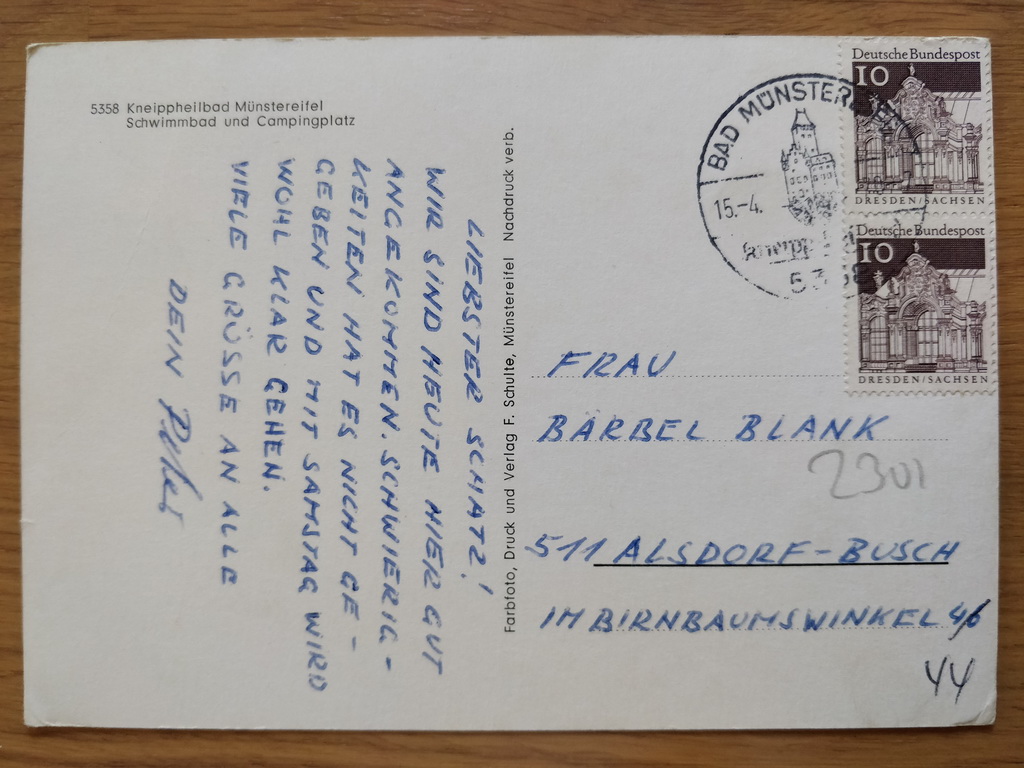 5358 Kneippheilbad Münstereifel
Schwimmbad und Campingplatz
LIEBSTER SCHATZ!
WIR SIND HEUTE HIER GUT
ANGEKOMMEN. SCHWIERIG-
KEITEN HAT ES NICHT GE-
GEBEN UND MIT SAMSTAG WIRD
WOHL KLAR GEHEN.
VIELE GRÜSSE AN ALLE
DEIN Peter
Farbfoto, Druck und Verlag F. Schulte, Münstereifel Nachdruck verb.
BAD MÜNSTEREIFEL
15.-4.
5358
Deutsche Bundespost
10
DRESDEN/SACHSEN
Deutsche Bundespost
10
DRESDEN/SACHSEN
FRAU
BÄRBEL BLANK
2301
511 ALSDORF-BUSCH
IM BIRNBAUMSWINKEL 4/6
44